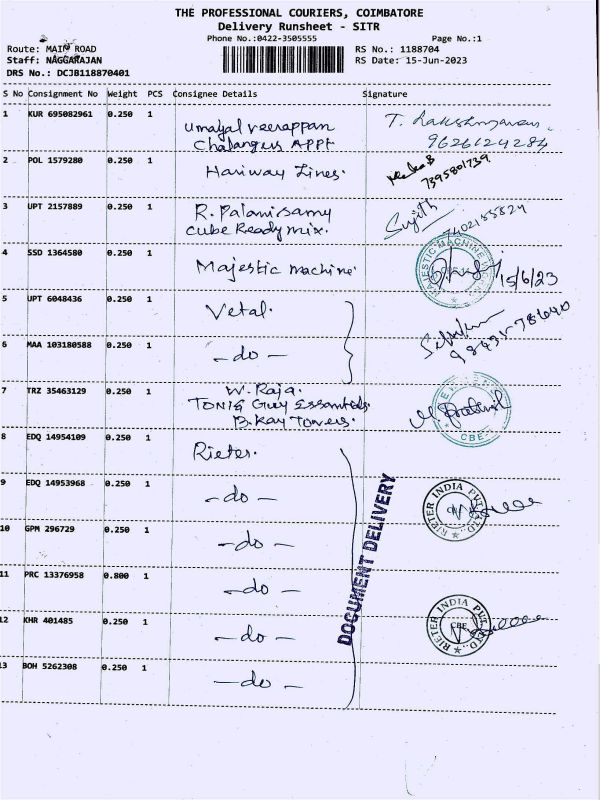 THE PROFESSIONAL COURIERS, COIMBATORE
Delivery Runsheet - SITR
Phone No.:0422-3505555 Page No.:1
Route: MAIN ROAD RS No.: 1188704
Staff: NAGGARAJAN RS Date: 15-Jun-2023
DRS No.: DCJB118870401
S No Consignment No Weight PCS Consignee Details Signature
1 KUR 695082961 0.250 1
Umayal veerappan
Chalangers APPt
9626124284
2 POL 1579280 0.250 1 Hariway Lines.
7395801739
3 UPT 2157889 0.250 1 R. Palanisamy Sujith
Cube Ready mix. 7402155829
4 SSD 1364580 0.250 1 Majestic machine.
MAJESTIC MACHINE
15/6/23
5 UPT 6048436 0.250 1 Vetal.
6 MAA 103180588 0.250 1 -do-
7 TRZ 35463129 0.250 1 W. Raja.
B. Kay Towers.
CBE
8 EDQ 14954109 0.250 1 Rieter.
9 EDQ 14953968 0.250 1 -do-
RIETER INDIA PVT. LTD.
10 GPM 296729 0.250 1 -do-
DOCUMENT DELIVERY
11 PRC 13376958 0.800 1 -do-
12 KHR 401485 0.250 1 -do-
RIETER INDIA PVT. LTD.
CBE
13 BOH 5262308 0.250 1 -do-